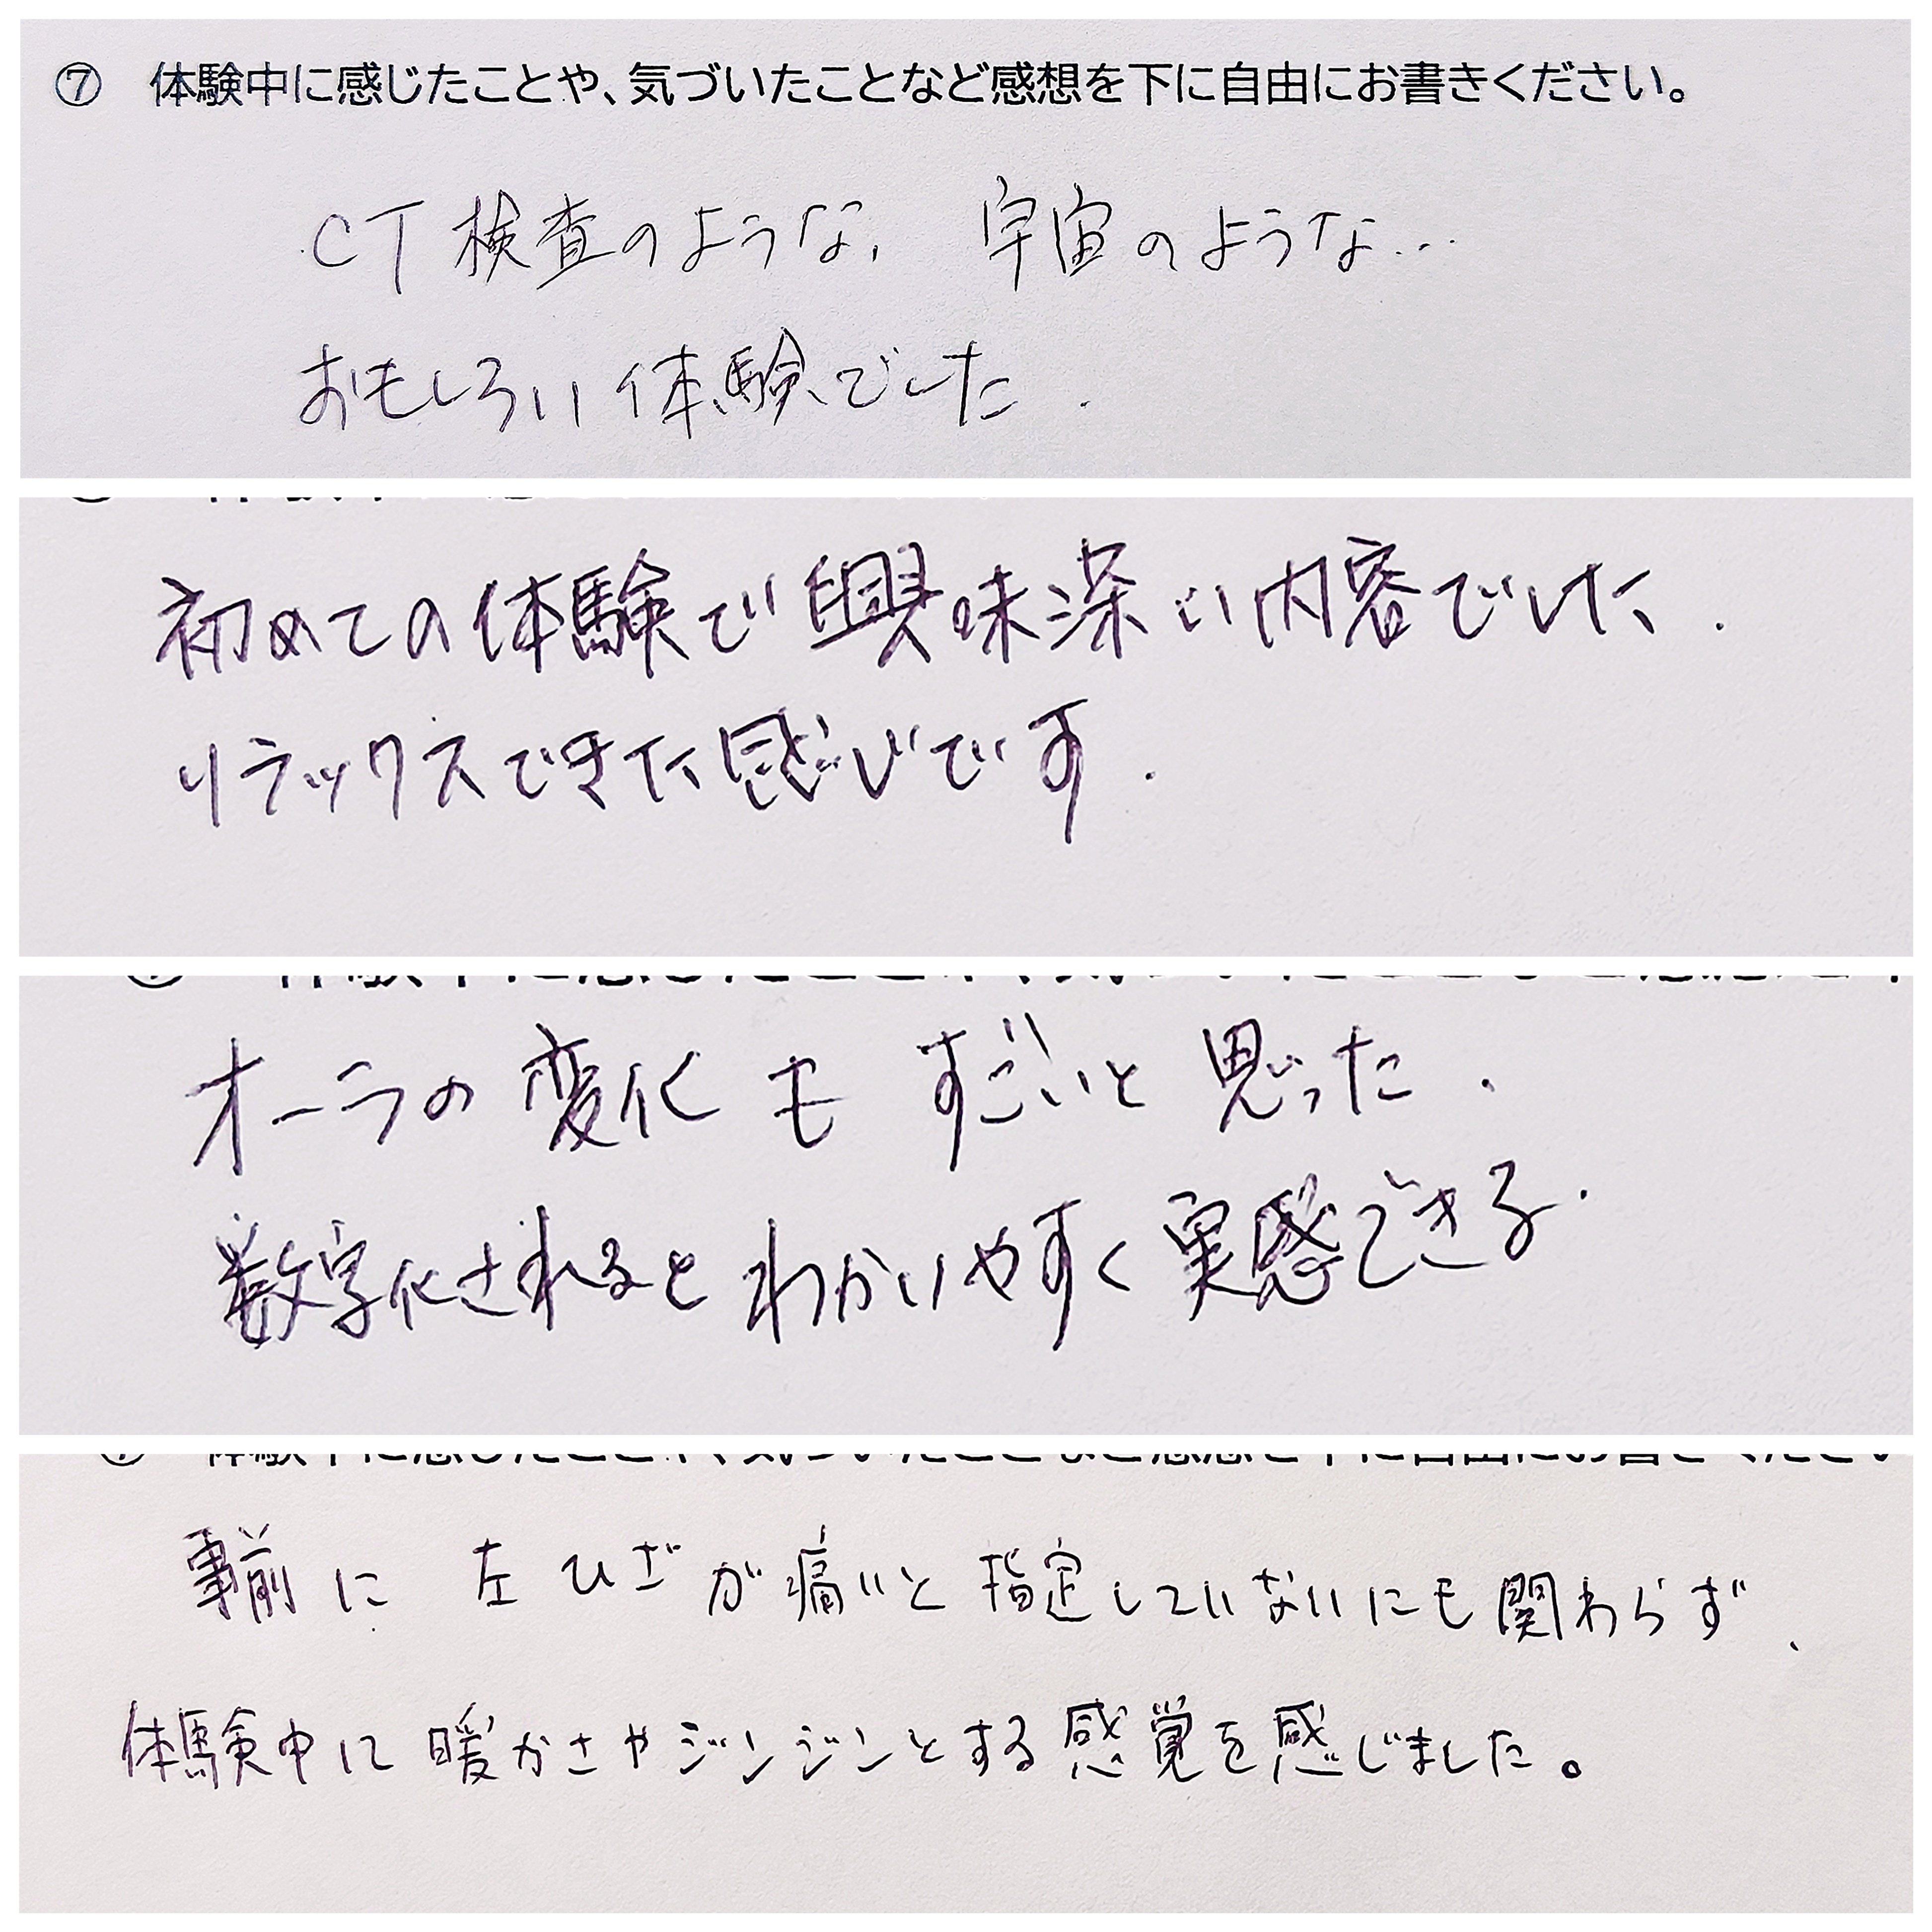 ⑦ 体験中に感じたことや、気づいたことなど感想を下に自由にお書きください。
CT検査のような, 宇宙のような...
おもしろい体験でした.
初めての体験で興味深い内容でした.
リラックスできた感じです.
オーラの変化も すごいと思った.
数字化されるとわかいやすく実感できる.
事前に 左ひざが痛いと指定していないにも関わらず、
体験中に暖かさやジンジンとする感覚を感じました。